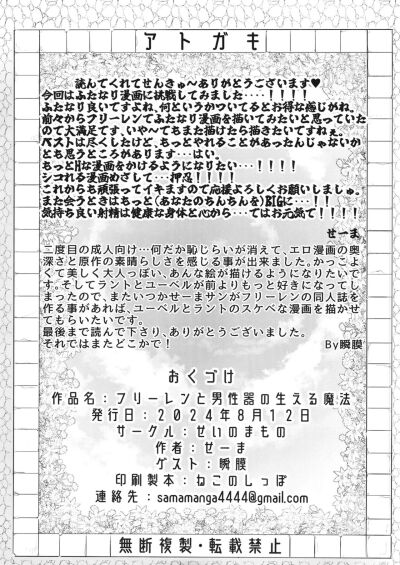 アトガキ
読んでくれてせんきゅ～ありがとうございます♥
今回はふたなり漫画に挑戦してみました……！！！！
ふたなり良いですよね、何というかついてるとお得な感じがね。
前々からフリーレンでふたなり漫画を描いてみたいと思っていた
ので大満足です、いや～でもまた描けたら描きたいですねぇ。
ベストは尽くしたけど、もっとやれることがあったんじゃないか
とも思うところがあります…はい。
もっとHな漫画をかけるようになりたい…！！！！
シコれる漫画めざして…押忍！！！！
これからも頑張ってイキますので応援よろしくお願いしましゅ。
また会うときはもっと(あなたのちんちんを)BIGに…！！
気持ち良い射精は健康な身体と心から…てはお元気で！！！！
せーま
二度目の成人向け…何だか恥じらいが消えて、エロ漫画の奥
深さと原作の素晴らしさを感じる事が出来ました。かっこよ
くて美しく大人っぽい、あんな絵が描けるようになりたいで
す。そしてラントとユーベルが前よりもっと好きになってし
まったので、またいつかせーまサンがフリーレンの同人誌を
作る事があれば、ユーベルとラントのスケベな漫画を描かせ
てもらいたいです。
最後まで読んで下さり、ありがとうございました。
それではまたどこかで！
By瞬膜
おくづけ
作品名：フリーレンと男性器の生える魔法
発行日：2024年8月12日
サークル：せいのまもの
作者：せーま
ゲスト：瞬膜
印刷製本：ねこのしっぽ
連絡先：samamanga4444@gmail.com
無断複製・転載禁止